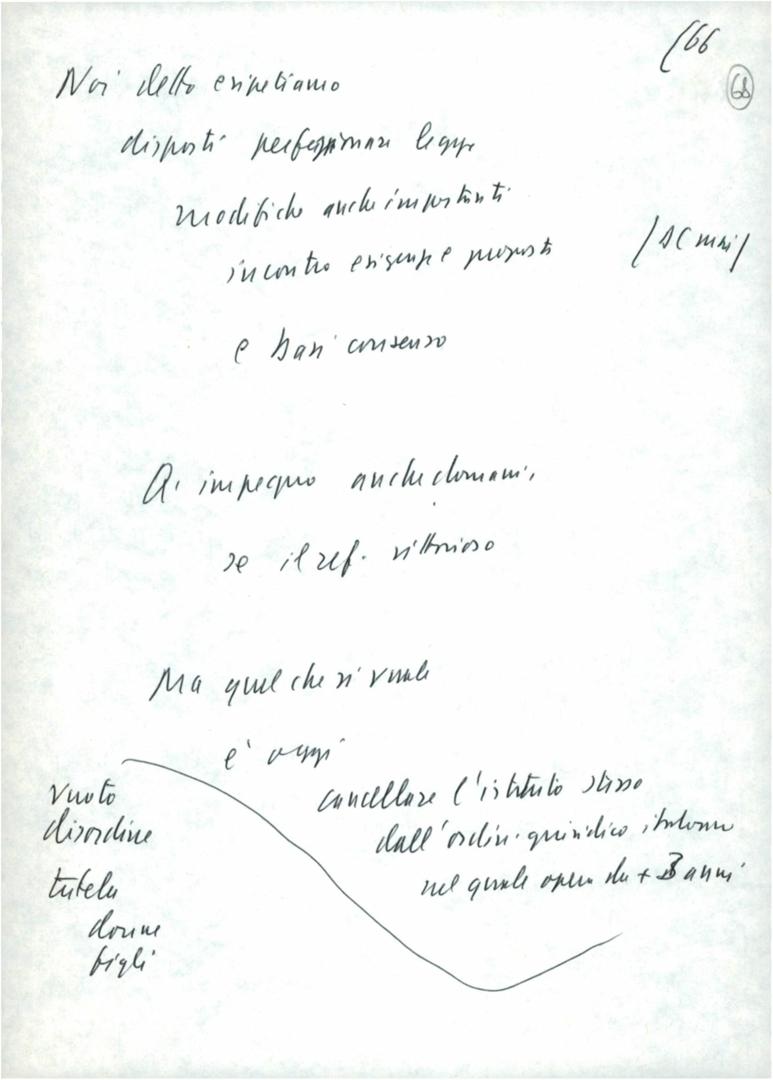 (66
68
Noi detto e ripetiamo
disposti perfezionare legge
modifiche anche importanti
incontro esigenze e proposte
/DC mai/
e basi consenso
Ci impegno anche domani,
se il ref. vittorioso
Ma quel che si vuole
e' oggi
cancellare l'istituto stesso
dall'ordin. giuridico italiano
nel quale opera da + 3 anni
vuoto
disordine
tutela
donne
figli